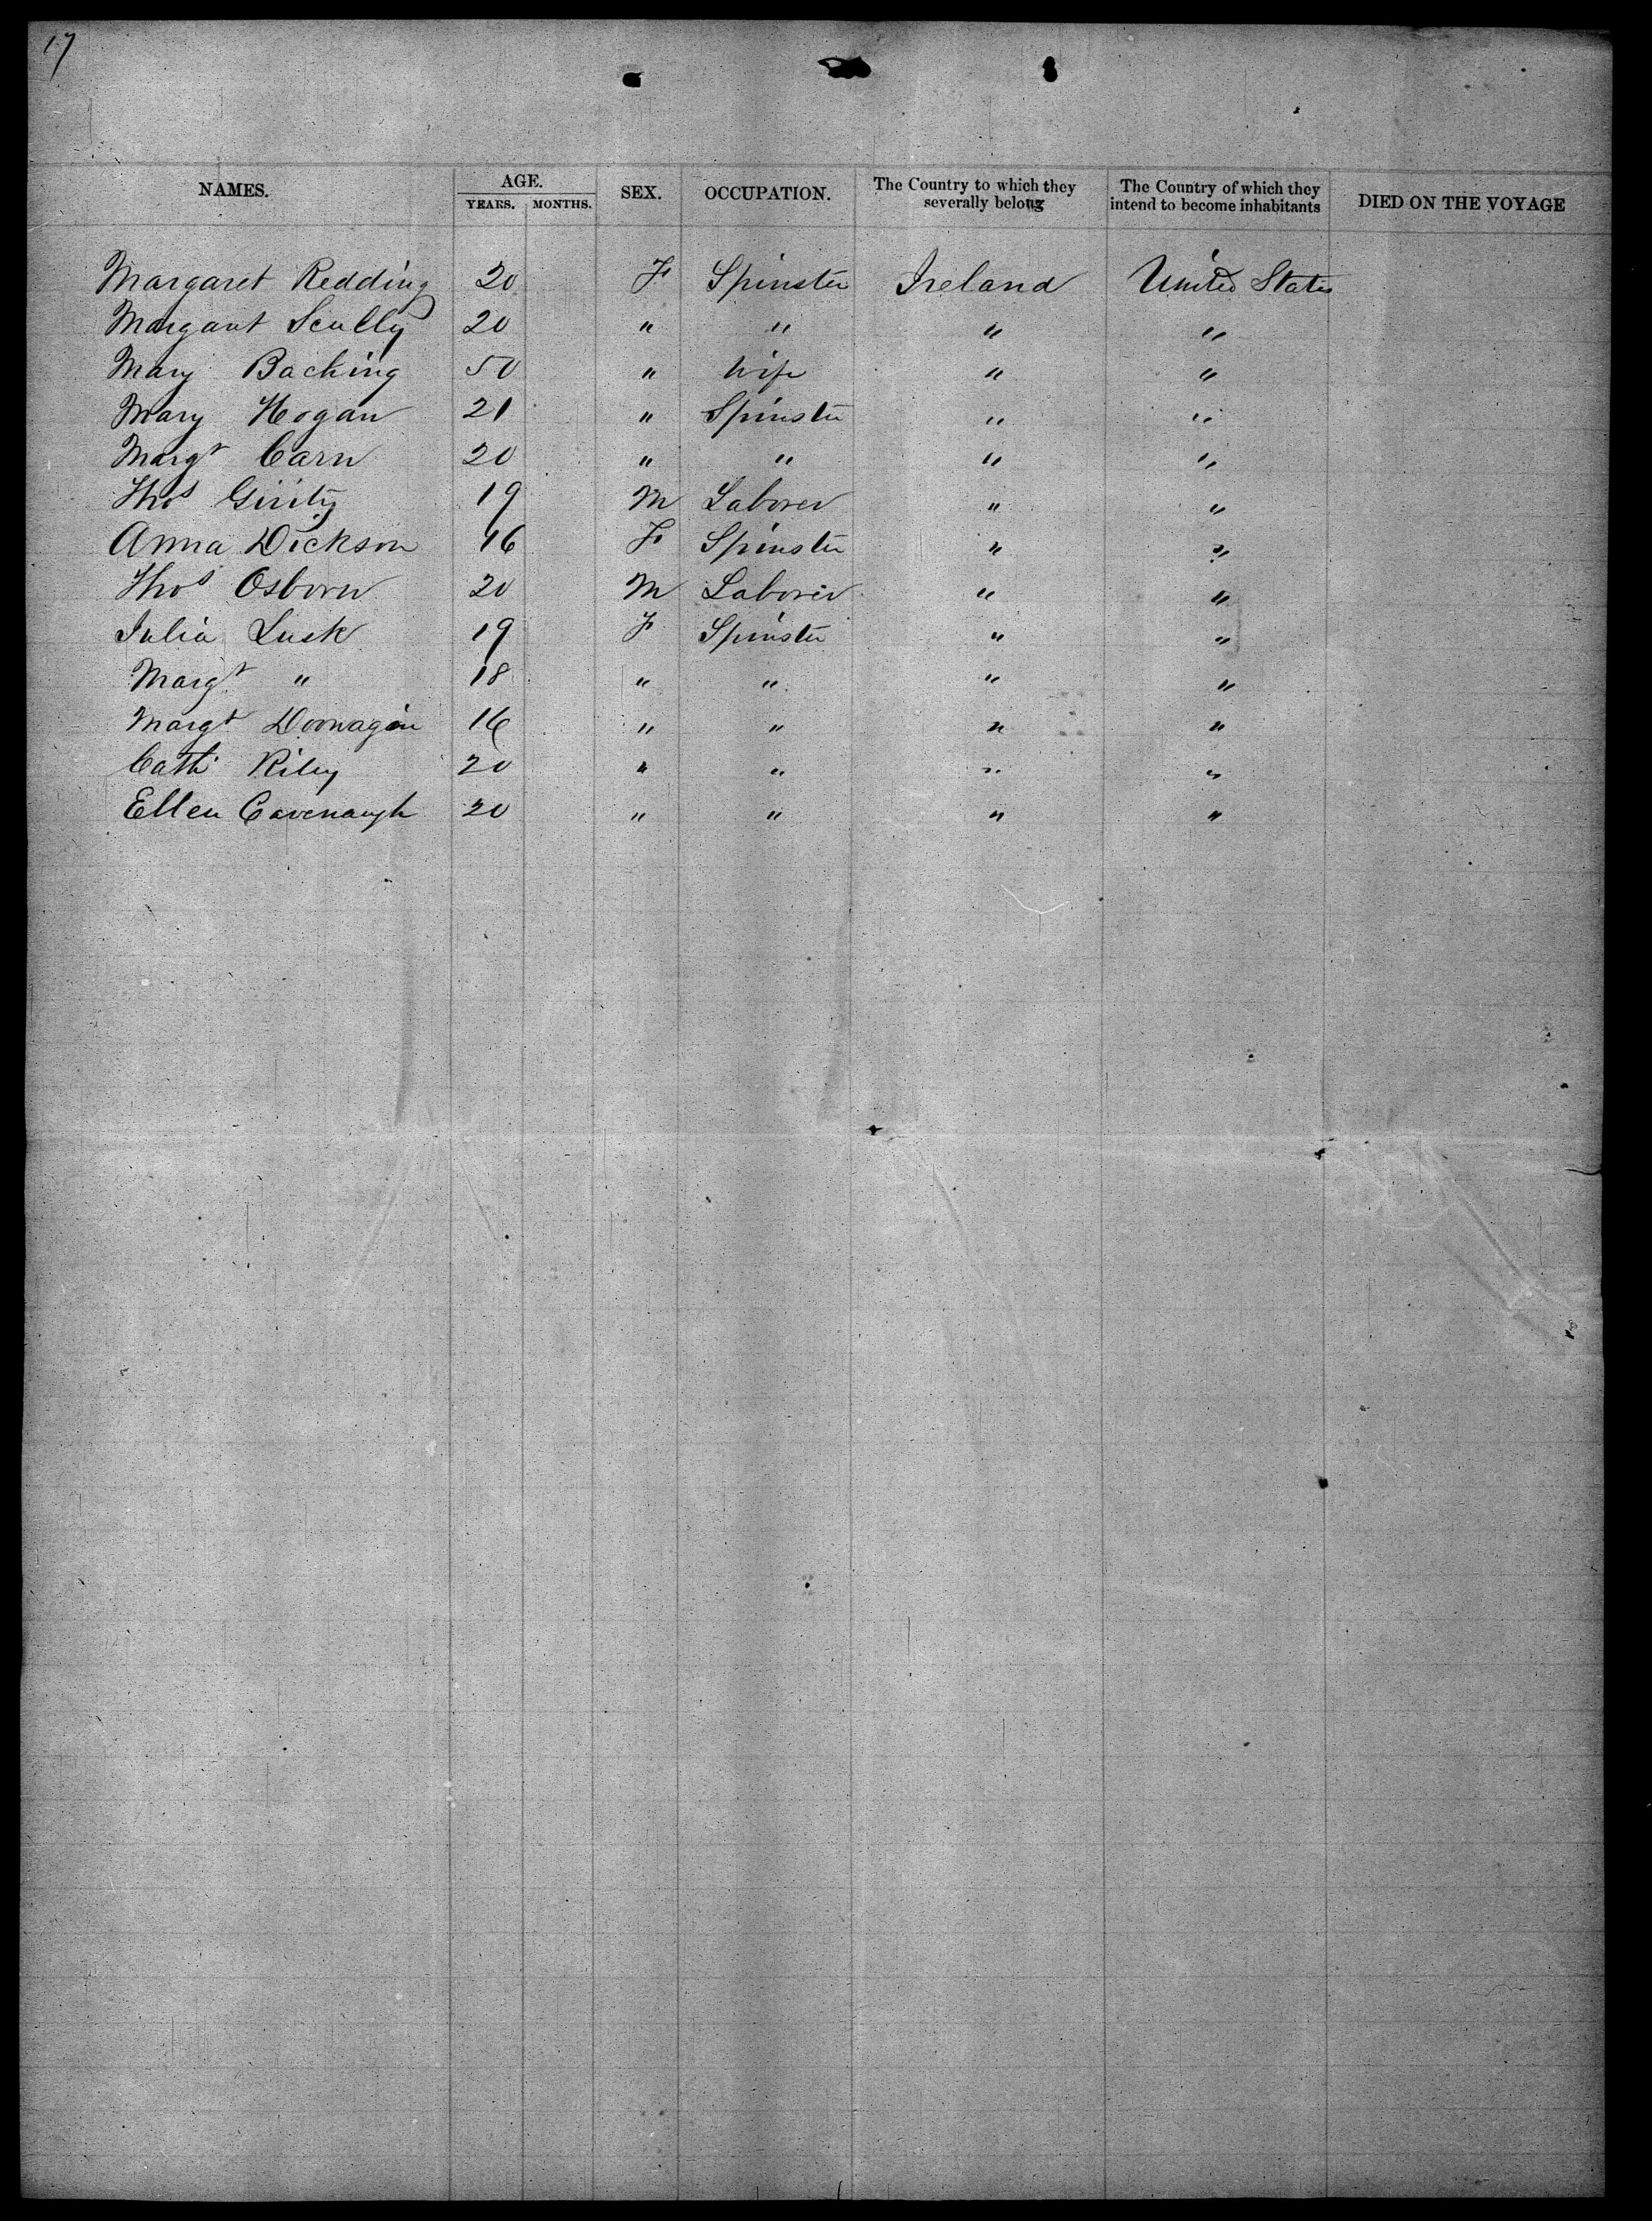 17
NAMES. AGE. SEX. OCCUPATION. The Country to which they severally belong The Country of which they intend to become inhabitants DIED ON THE VOYAGE
YEARS. MONTHS.
Margaret Redding 20 F Spinster Ireland United States
Margaret Scully 20 " " " "
Mary Backing 50 " Wife " "
Mary Hogan 21 " Spinster " "
Margt Carn 20 " " " "
Thos Girity 19 M Laborer " "
Anna Dickson 16 F Spinster " "
Thos Osborn 20 M Laborer " "
Julia Lusk 19 F Spinster " "
Margt " 18 " " " "
Margt Doonagan 16 " " " "
Cath Riley 20 " " " "
Ellen Cavenaugh 20 " " " "